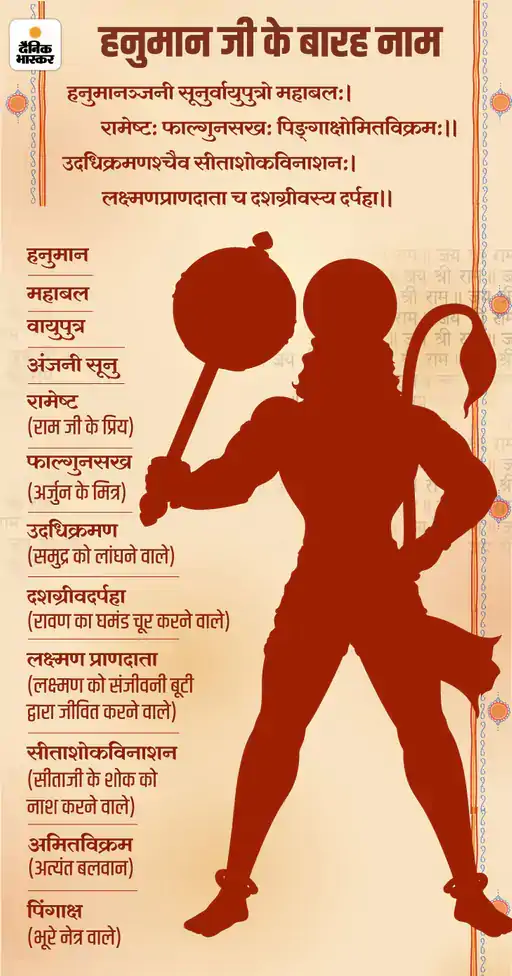 दैनिक
भास्कर
हनुमान जी के बारह नाम
हनुमानञ्जनी सूनुर्वायुपुत्रो महाबलः।
रामेष्टः फाल्गुनसखः पिङ्गाक्षोमितविक्रमः।।
उदधिक्रमणश्चैव सीताशोकविनाशनः।
लक्ष्मणप्राणदाता च दशग्रीवस्य दर्पहा।।
हनुमान
महाबल
वायुपुत्र
अंजनी सूनु
रामेष्ट
(राम जी के प्रिय)
फाल्गुनसख
(अर्जुन के मित्र)
उदधिक्रमण
(समुद्र को लांघने वाले)
दशग्रीवदर्पहा
(रावण का घमंड चूर करने वाले)
लक्ष्मण प्राणदाता
(लक्ष्मण को संजीवनी बूटी
द्वारा जीवित करने वाले)
सीताशोकविनाशन
(सीताजी के शोक को
नाश करने वाले)
अमितविक्रम
(अत्यंत बलवान)
पिंगाक्ष
(भूरे नेत्र वाले)